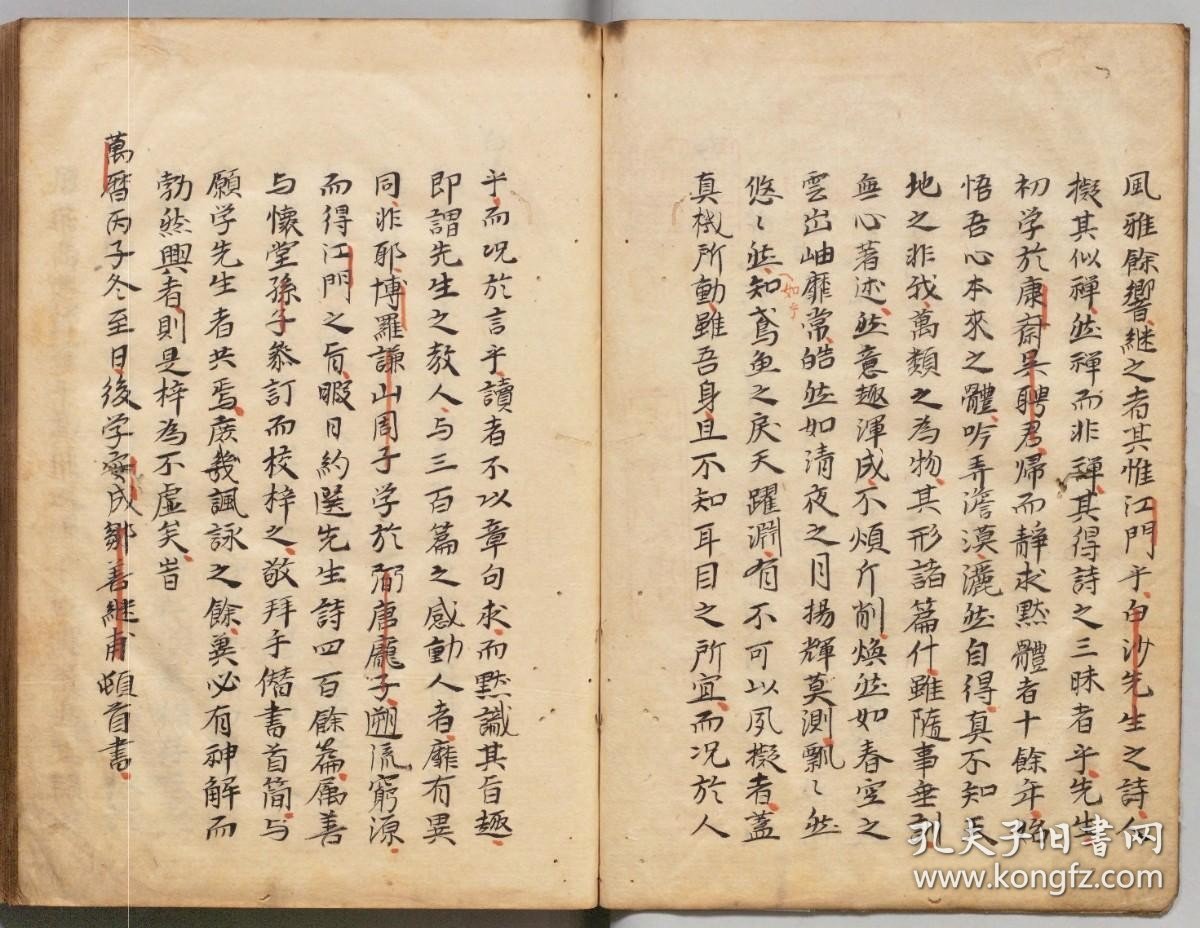 風雅餘響継之者其惟江門乎白沙先生之詩人
擬其似禅然禅而非禅其得詩之三昧者乎先生
初学於康齋吳聘君帰而静求黙體者十餘年
悟吾心本來之體吟弄澹漠灑然自得真不知天
地之非我萬類之為物其形諸篇什雖隨事垂訓
無心著述然意趣渾成不煩斤削煥然如春空之
雲出岫靡常皓然如清夜之月揚輝莫測飄〻然
悠〻然知鳶魚之戾天躍淵有不可以夙擬者蓋
如乎
真機所動雖吾身且不知耳目之所宜而况於人
乎而况於言乎讀者不以章句求而黙識其旨趣
即謂先生之教人与三百篇之感動人者靡有異
同非耶博羅謙山周子学於弼唐龐子遡流窮源
而得江門之旨暇日約選先生詩四百餘篇属善
与懷堂孫子叅訂而校梓之敬拜手僭書首簡与
願学先生者共焉庻幾諷詠之餘兾必有神解而
勃然興者則是梓為不虛矣旹
萬曆丙子冬至日後学安成鄒善継甫頓首書
孔夫子旧书网
www.kongfz.com